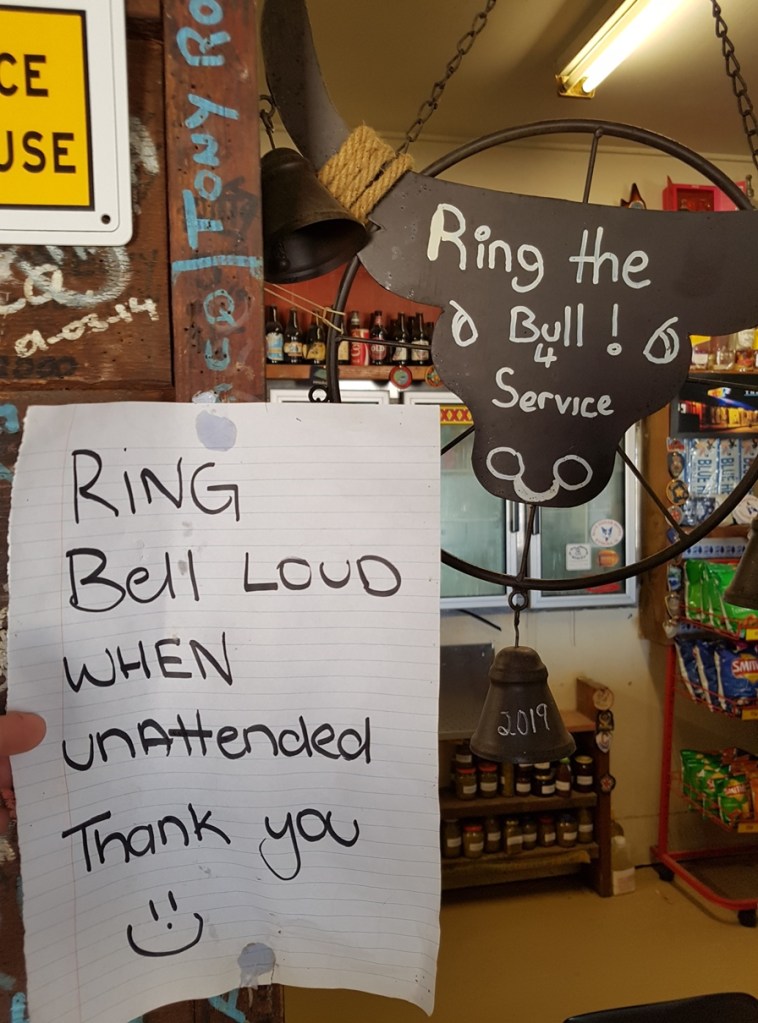 CE
USE
TONY RO
9-03-14
Ring the
Bull !
4
Service
RING
Bell LOUD
WHEN
unAttended
Thank you
2019
SMIT